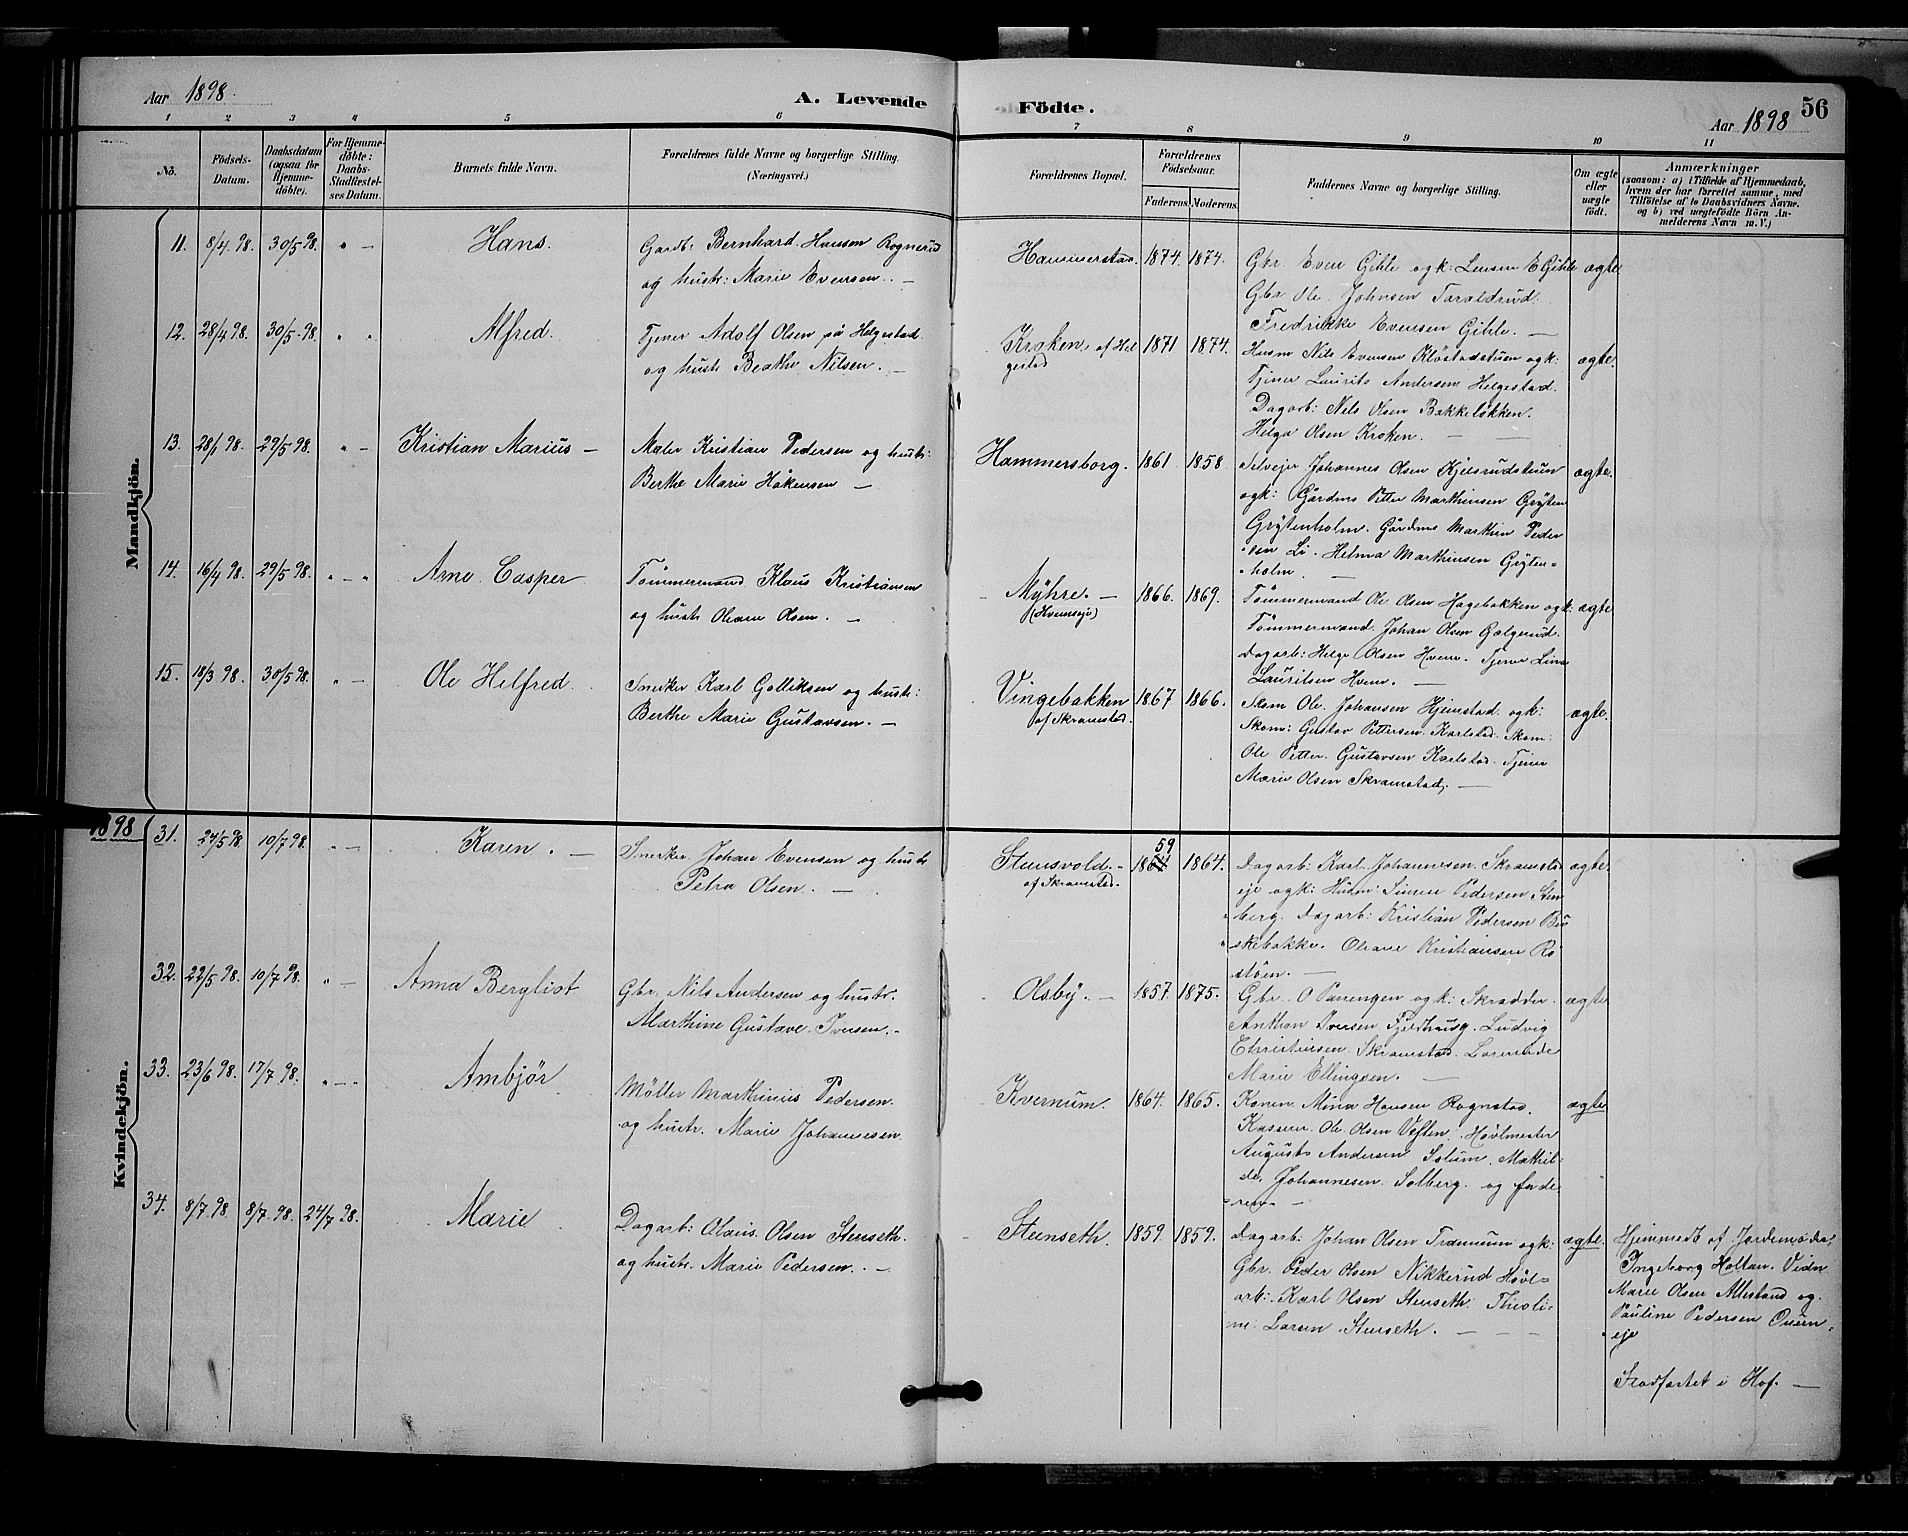 Aar 1898.
A. Levende
Födte.
56
Aar 1898
1 2 3 4 5 6 7 8 9 10 11
No.
Födsels-
Datum.
Daabsdatum
(ogsaa for
Hjemme-
döbte).
For Hjemme-
döbte:
Daabs-
Stadfæstel-
ses Datum.
Barnets fulde Navn.
Forældrenes fulde Navne og borgerlige Stilling.
(Næringsvei.)
Forældrenes Bopæl.
Forældrenes
Födselsaar.
Faderens. Moderens.
Faddernes Navne og borgerlige Stilling.
Om ægte
eller
uægte
födt.
Anmærkninger
(saasom: a) i Tilfælde af Hjemmedaab,
hvem der har forrettet samme, med
Tilföielse af to Daabsvidners Navne.
og b) ved uægtefödte Börn An-
melderens Navn m. V.)
Mandkjön.
11. 8/4 98. 30/5 98. " — Hans.
Gardb: Bernhard Hansen Rognerud
og hustr: Marie Evensen. —
Hammerstad. 1874. 1874.
Gbr. Even Gihle og k: Lensen E Gihle
Gbr Ole Johnsen Taraldrud.
Fredrikke Evensen Gihle. —
ægte
12. 28/4 98. 30/5 98. " " Alfred.
Tjener Adolf Olsen på Helgestad
og hustr Beathe Nilsen. —
Kroken. af Hel
gestad
1871 1874.
Husm Nils Evensen Klöstadstuen og k:
Tjener Laurits Andersen Helgestad.
Dagarb: Nils Olsen Bakkelökken.
Helga Olsen Kroken. — —
ægte.
13. 28/1 98. 29/5 98. " — Kristian Marius —
Maler Kristian Pedersen og hustr:
Berthe Marie Håkensen —
Hammersborg. 1861. 1858
Selveier Johannes Olsen Kjelsrudstuen
og k: Gårdms Petter Marthinsen Gryten
Grytenholm. Gårdms Marthin Peder
sen Li. Helma Marthinsen Gryten=
holm —
ægte.
14. 16/4 98. 29/5 98. " — " Arne Casper
Tömmermand Klaus Kristiansen
og hustr Oleane Olsen. —
Myhre. —
(Hvemseje)
1866. 1869.
Tömmermand Ole Olsen Hagebakken og k:
Tömmermand Johan Olsen Galgerud.
Dagarb: Helge Olsen Hvem. Tjener Lina
Lauritsen Hvem. —
ægte
15. 18/3 98. 30/5 98. " — Ole Helfred.
Snedker Karl Golliksen og hustr:
Berthe Marie Gustavsen. —
Vingebakken
af Skramstad.
1867 1866.
Skom Ole Johansen Hjemstad og k:
Skom: Gustav Pettersen Karlstad. Skom:
Ole Petter Gustavsen Karlstad. Tjener
Marie Olsen Skramstad. —
ægte.
1898
Kvindekjön.
31. 24/5 98 10/7 98. " — Karen. —
Snedker Johan Evensen og hustr
Petra Olsen. —
Stensvold. —
af Skramstad.
59
1864 1864.
Dagarb: Karl Johannesen Skramstad
eje og k: Husm: Simen Pedersen Sten
berg. Dagarb: Kristian Pedersen Bu
skebakke. Oleave Kristiansen Rö
stöen. —
ægte.
32. 22/5 98. 10/7 98. " — Anna Bergliot
Gbr. Nils Andersen og hustr.
Marthine Gustave Iversen. —
Olsby. — 1857. 1875.
Gbr. O Panengen og k: Skrædder
Anthon Iversen Fjeldhaug. Ludvig
Christensen Skramstad.
Marie Ellingsen. —
ægte
33. 23/6 98. 17/7 98. " — Ambjör
Möller Marthinius Pedersen
og hustr. Marie Johannesen.
Kvernum. 1864. 1865.
Konen Mina Hansen Rognstad.
Kasserer Ole Olsen Veflen. Hövlmester
Augusts Andersen Solum. Mathil=
de Johannesen Solberg. og fade
ren. —
ægte
34. 8/7 98 8/7 98. 24/7 98. Marie
Dagarb: Olaus Olsen Stenseth.
og hustr. Marie Pedersen. —
Stenseth. 1859. 1859.
Dagarb: Johan Olsen Frænum og k:
Gbr. Peder Olsen Nikkerud Hövl=
arb: Karl Olsen Stenseth. Theoli=
ne Larsen Stenseth. — — —
ægte.
Hjemmedt af Jordemoder
Ingeborg Holtan. Vidn
Marie Olsen Allestand og
Pauline Pedersen Quern
eje
Stadfæstet i Hof. —